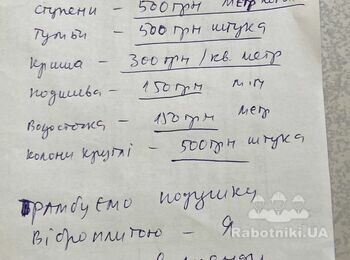 ступени - 500грн метр
тумби - 500 грн штука
криша - 300грн/кв. метр
подшива - 150грн м.п
Водосточка - 150грн метр
колони круглі - 500грн штука
Трамбуємо подушку
Віброплитою - Я
Rabotniki.UA